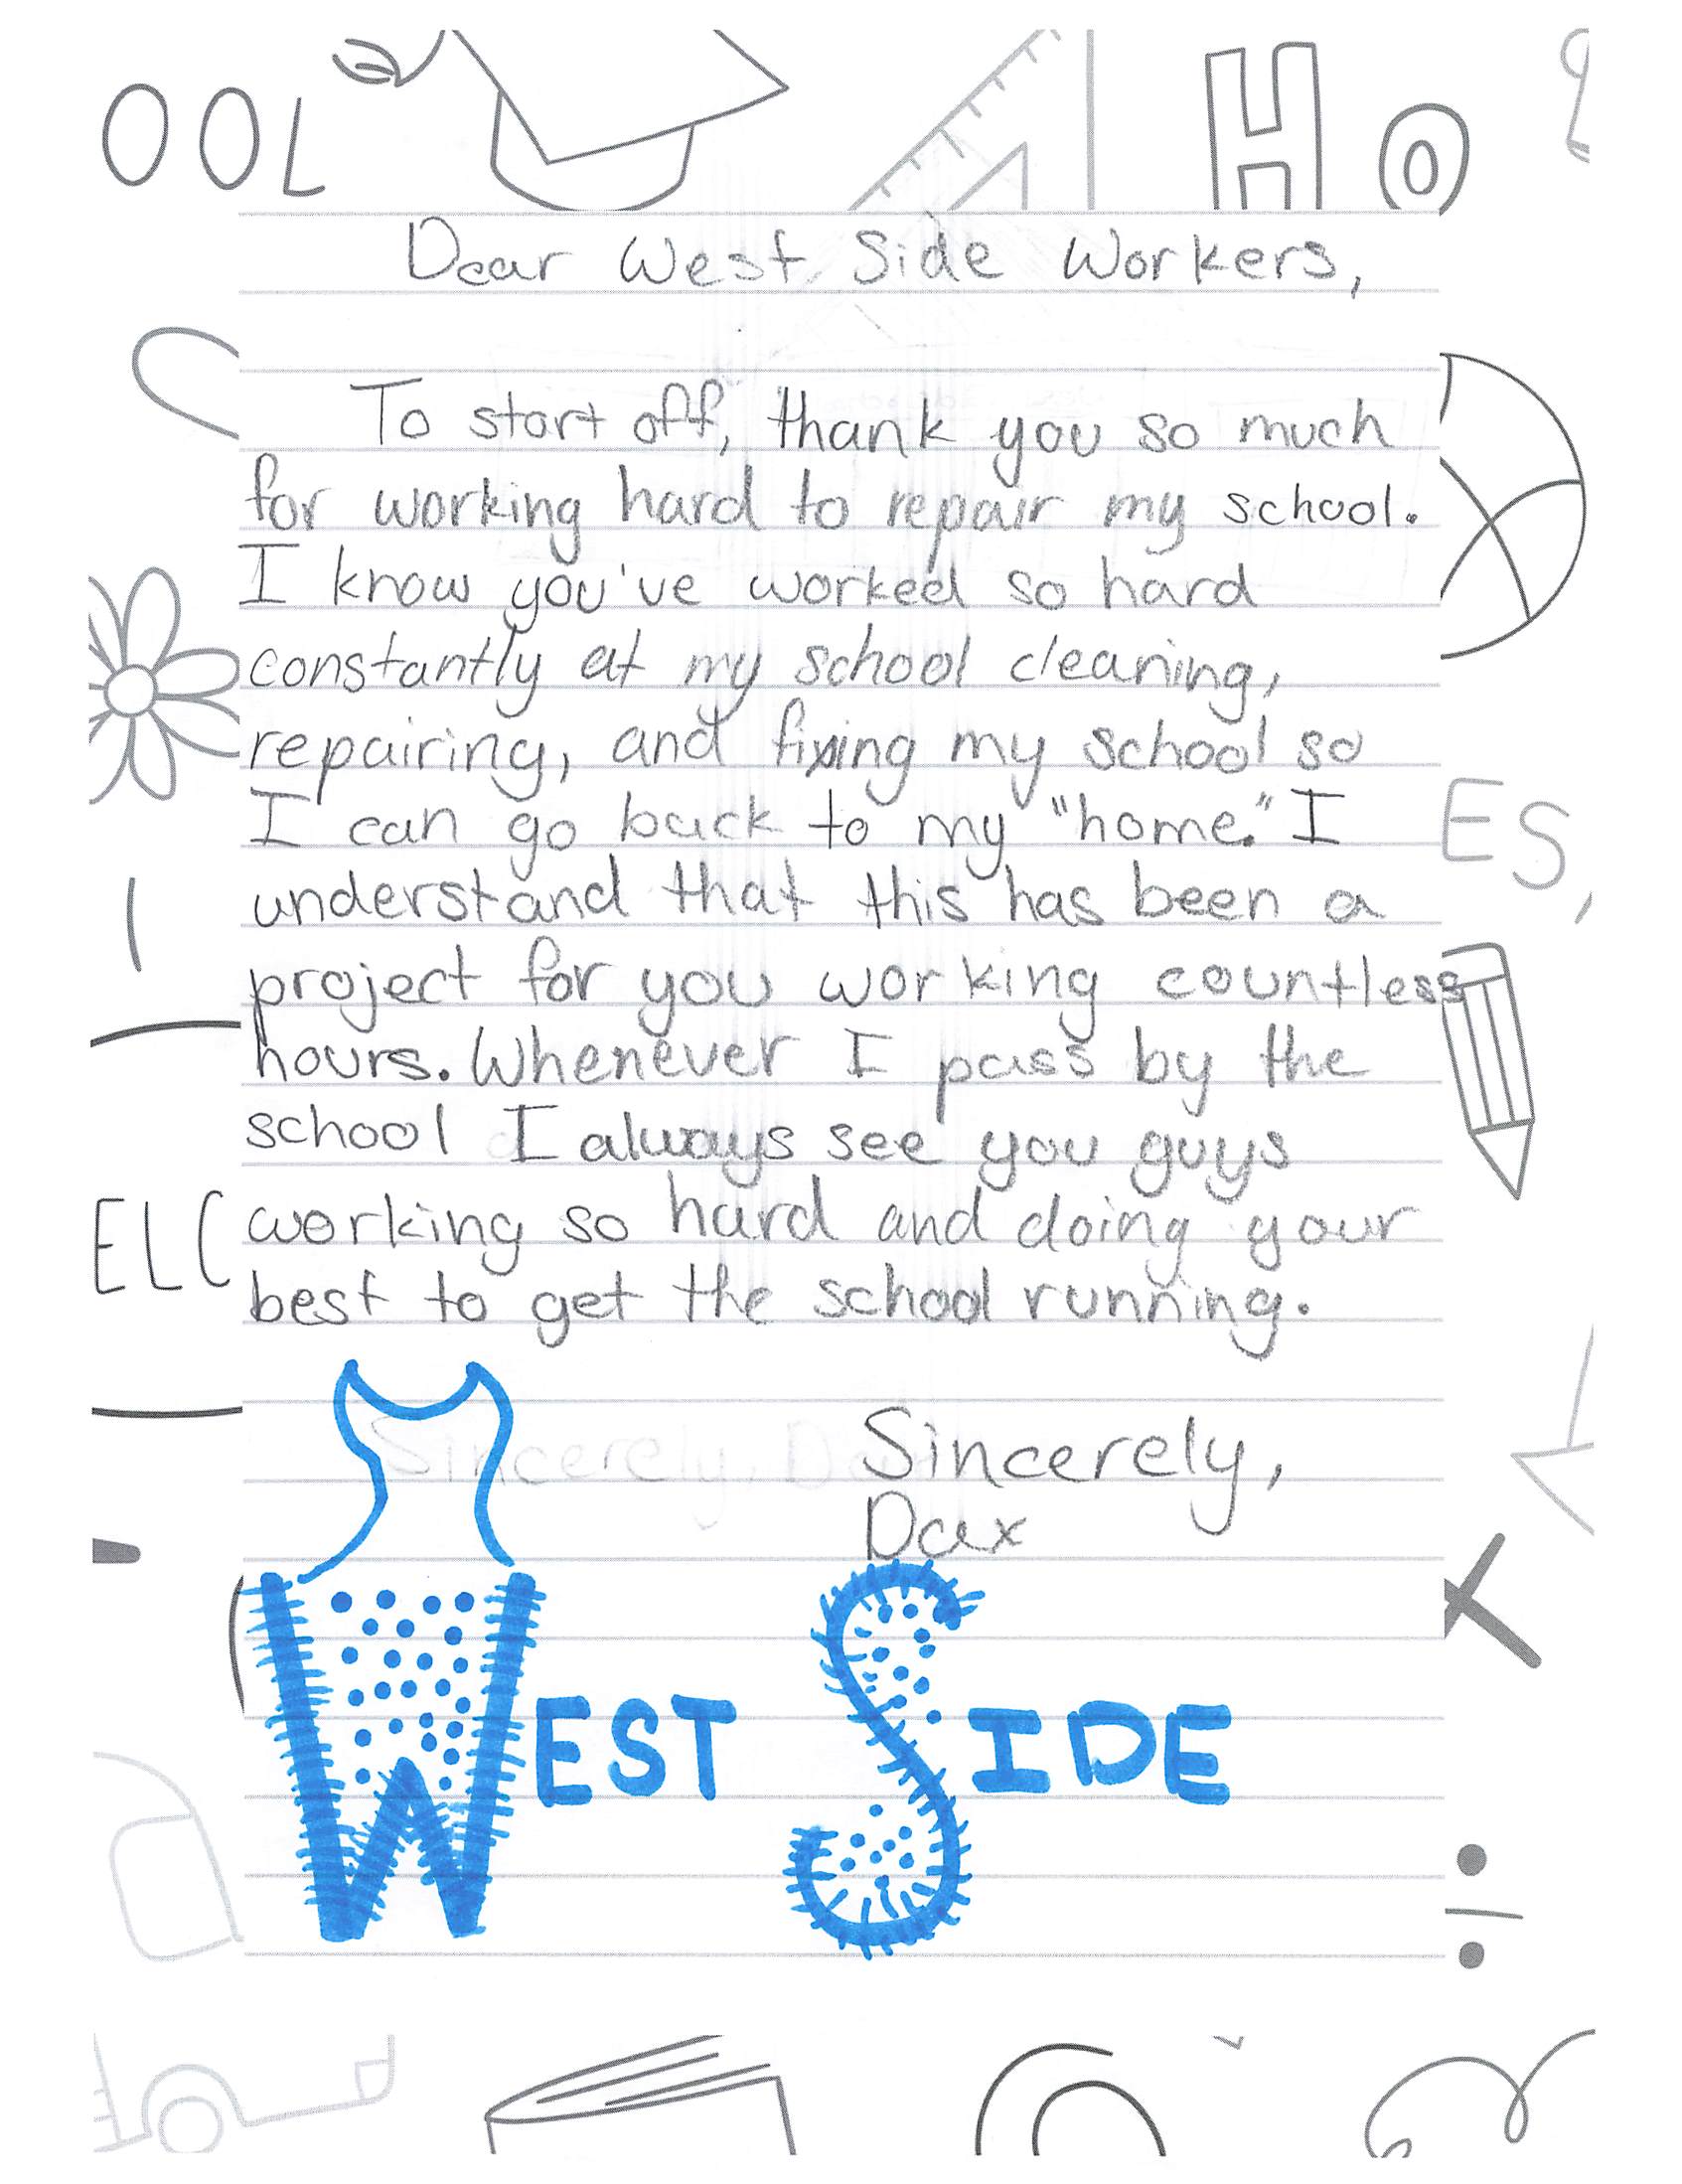 OOL
Ho
Dear West Side Workers,
To start off, thank you so much
for working hard to repair my school.
I know you've worked so hard
constantly at my school cleaning,
repairing, and fixing my school so
I can go back to my "home." I
ES,
understand that this has been a
project for you working countless
hours. Whenever I pass by the
school I always see you guys
ELC
working so hard and doing your
best to get the school running.
Sincerely,
Dax
WEST SIDE